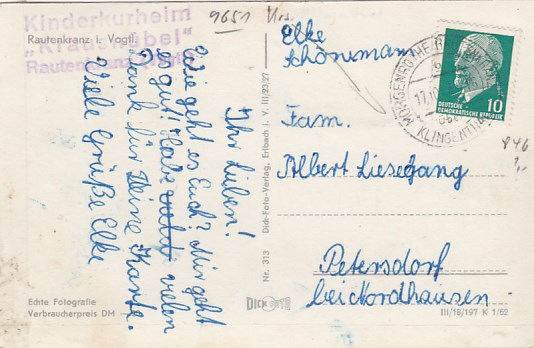 Kinderkurheim
"Krauskobel"
Rautenkranz
Rautenkranz i. Vogtl.
9651
Ihr Lieben!
Wie geht es Euch? Mir geht
es gut! Habe vielen
Dank für Deine Karte.
Viele Grüße Elke
Echte Fotografie
Verbraucherpreis DM
Nr. 313 Dick-Foto-Verlag, Erlbach i. V. III/23/27
DICK
Elke
Schönemann
Fam.
Albert Liesegang
Petersdorf
bei Nordhausen
III/18/197 K 1/62
MORGENRÖTHE-RAUTENKRANZ
KLINGENTHAL
10
DEUTSCHE
DEMOKRATISCHE REPUBLIK
P46
1,-